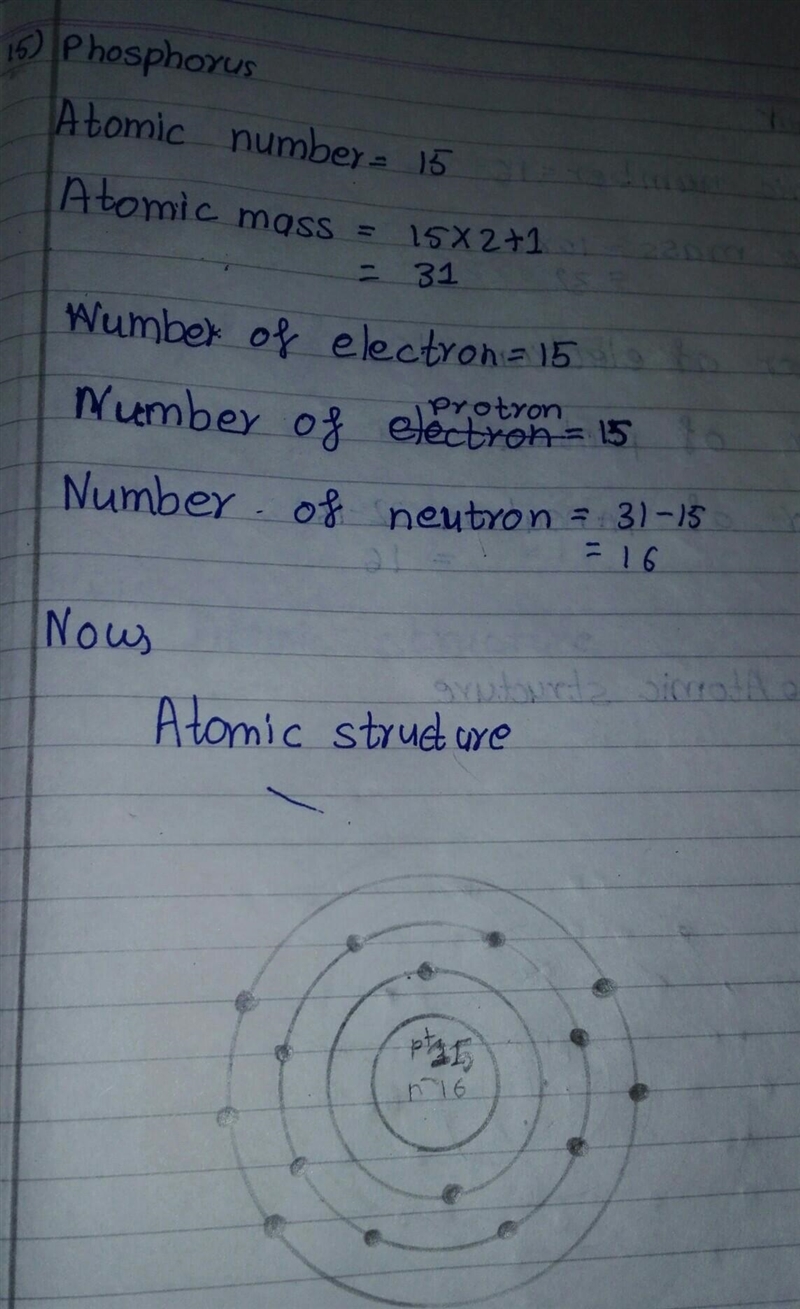 15) Phosphorus
Atomic number = 15
Atomic mass = 15×2+1
= 31
Number of electron = 15
protron
Number of electron = 15
Number of neutron = 31-15
= 16
Now,
Atomic structure
p+ 15
n- 16